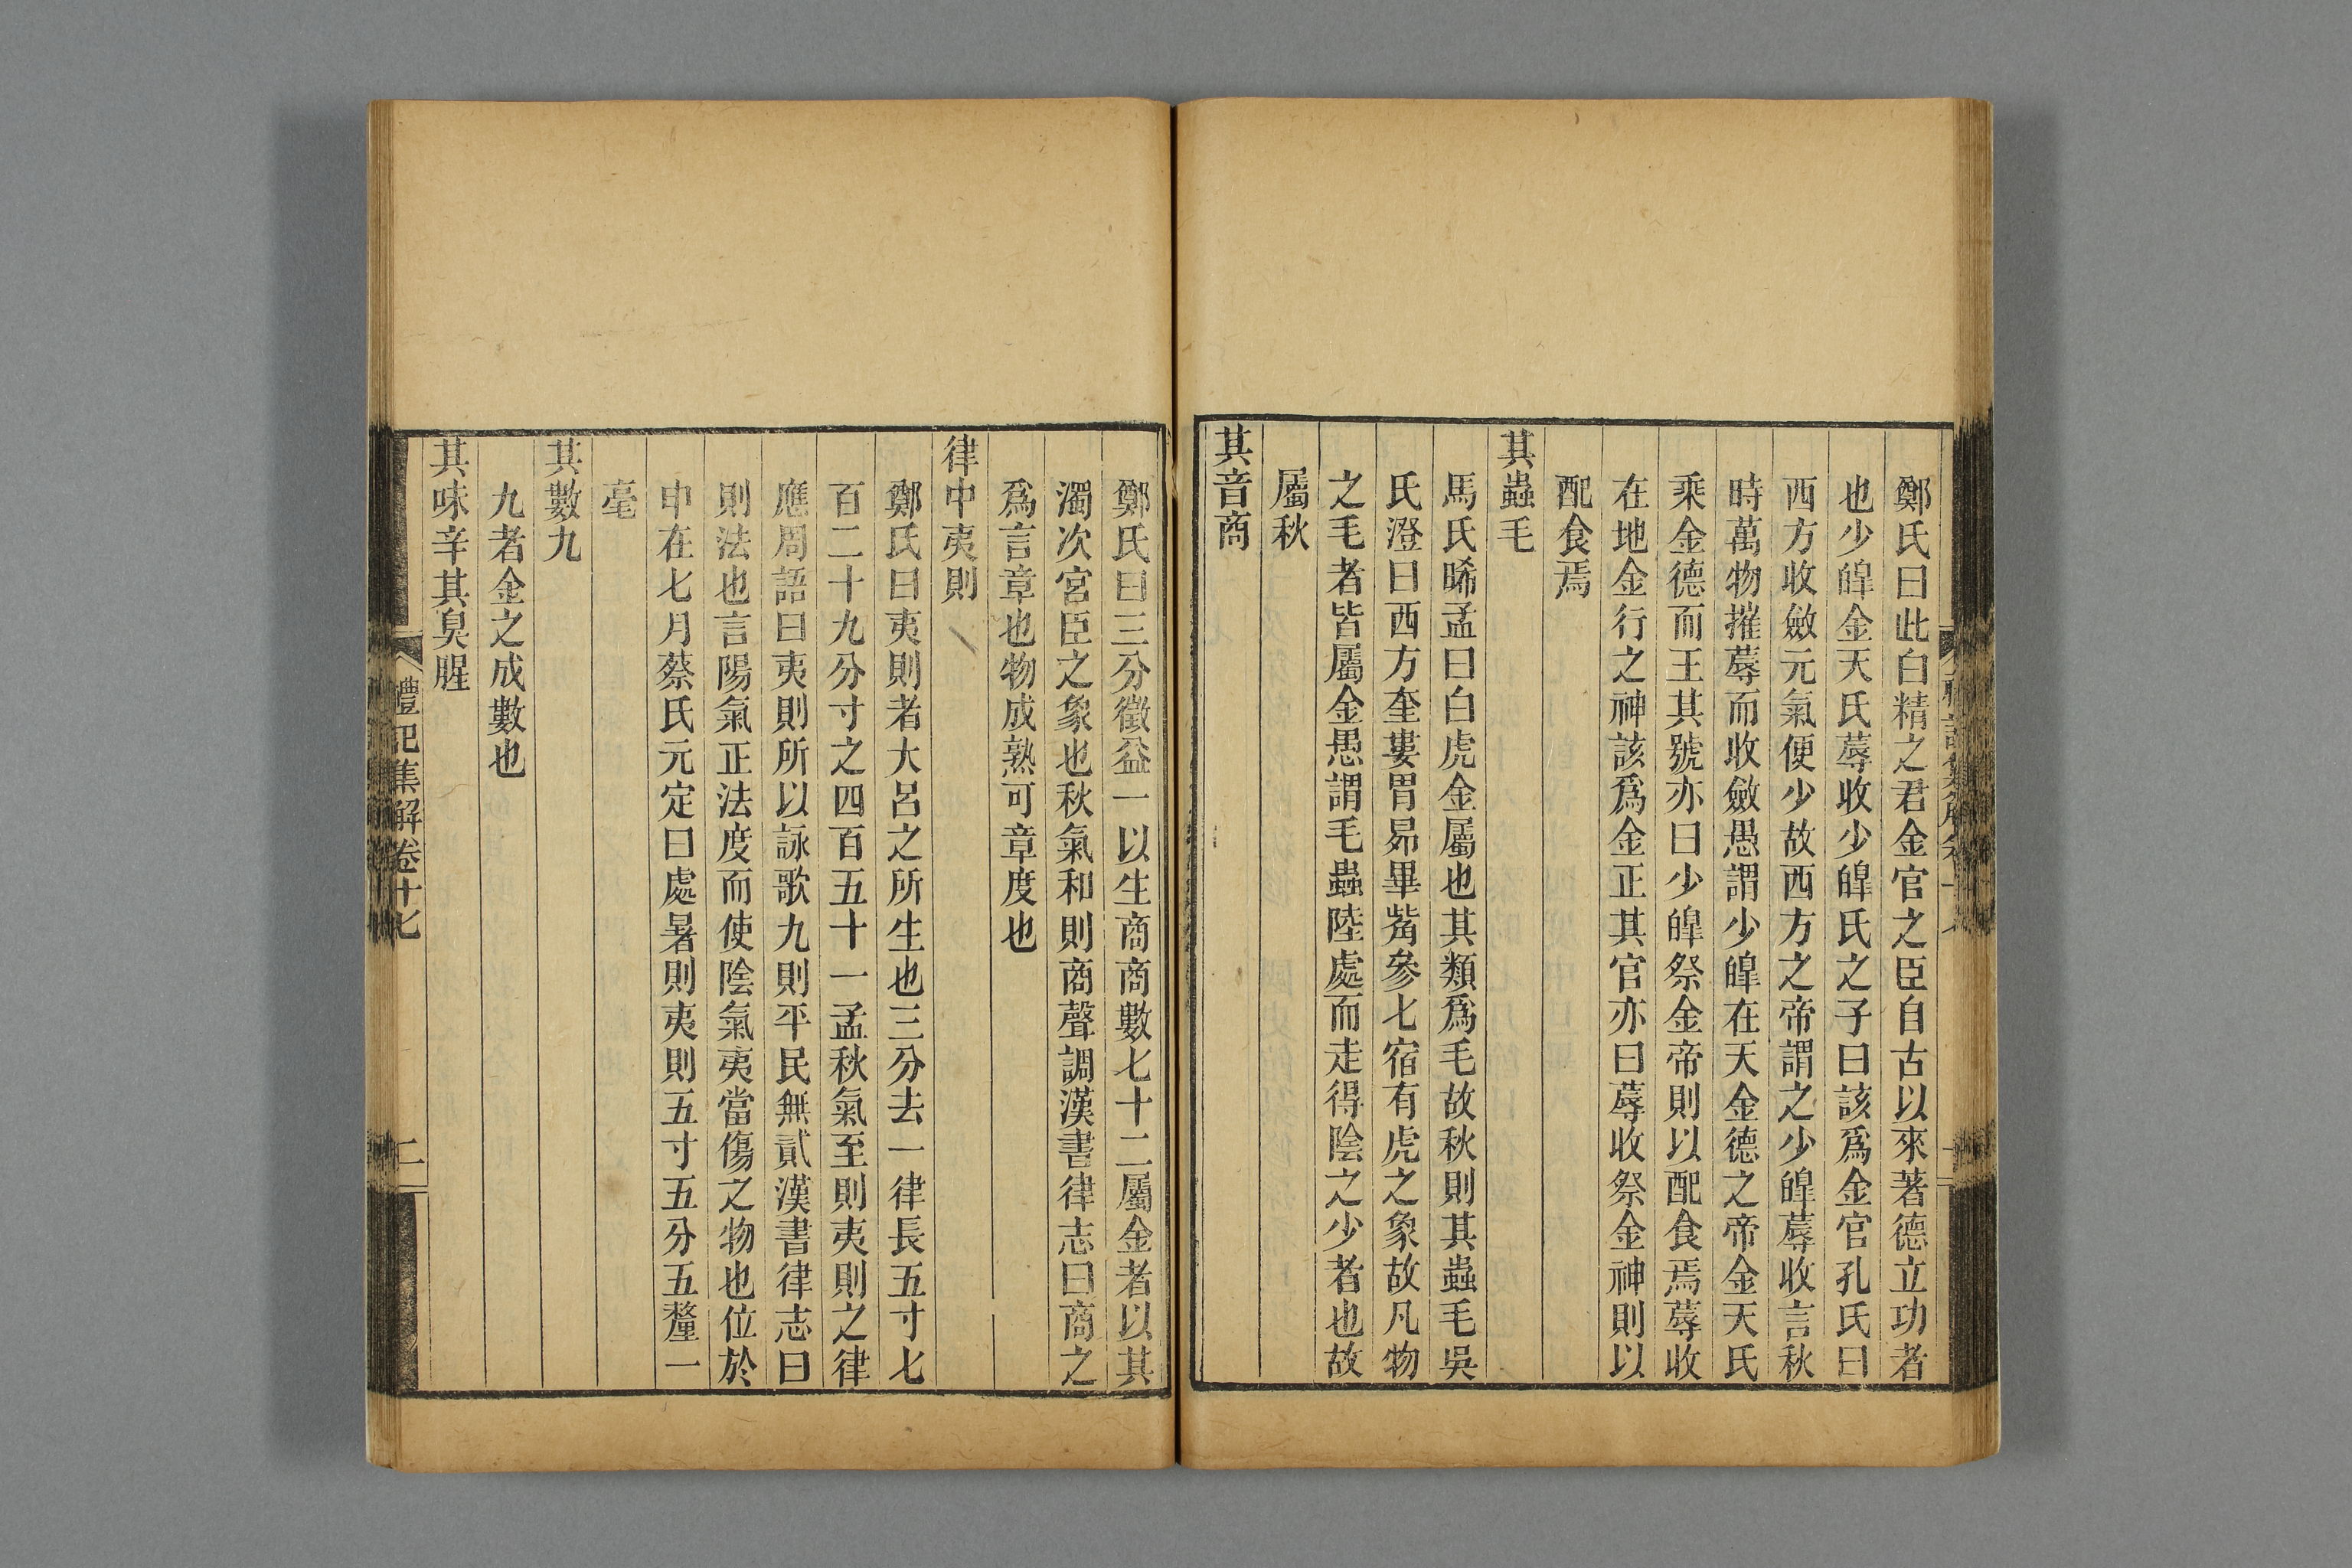 鄭氏曰此白精之君金官之臣自古以來著德立功者
也少皥金天氏蓐收少皥氏之子曰該爲金官孔氏曰
西方收斂元氣便少故西方之帝謂之少皥蓐收言秋
時萬物摧蓐而收斂愚謂少皥在天金德之帝金天氏
乘金德而王其號亦曰少皥祭金帝則以配食焉蓐收
在地金行之神該爲金正其官亦曰蓐收祭金神則以
配食焉
其蟲毛
馬氏晞孟曰白虎金屬也其類爲毛故秋則其蟲毛吳
氏澄曰西方奎婁胃昴畢觜參七宿有虎之象故凡物
之毛者皆屬金愚謂毛蟲陸處而走得陰之少者也故
屬秋
其音商
鄭氏曰三分徵益一以生商商數七十二屬金者以其
濁次宮臣之象也秋氣和則商聲調漢書律志曰商之
爲言章也物成熟可章度也
律中夷則
鄭氏曰夷則者大呂之所生也三分去一律長五寸七
百二十九分寸之四百五十一孟秋氣至則夷則之律
應周語曰夷則所以詠歌九則平民無貳漢書律志曰
則法也言陽氣正法度而使陰氣夷當傷之物也位於
申在七月蔡氏元定曰處暑則夷則五寸五分五釐一
毫
其數九
九者金之成數也
其味辛其臭腥
禮記集解卷十七
二